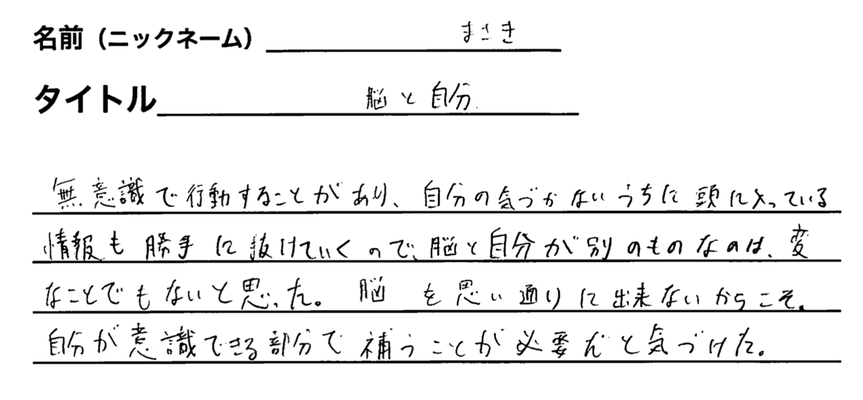 名前（ニックネーム） まさき
タイトル 脳と自分
無意識で行動することがあり、自分の気づかないうちに頭に入っている
情報も勝手に抜けていくので、脳と自分が別のものなのは、変
なことでもないと思った。脳を思い通りに出来ないからこそ、
自分が意識できる部分で補うことが必要だと気づけた。